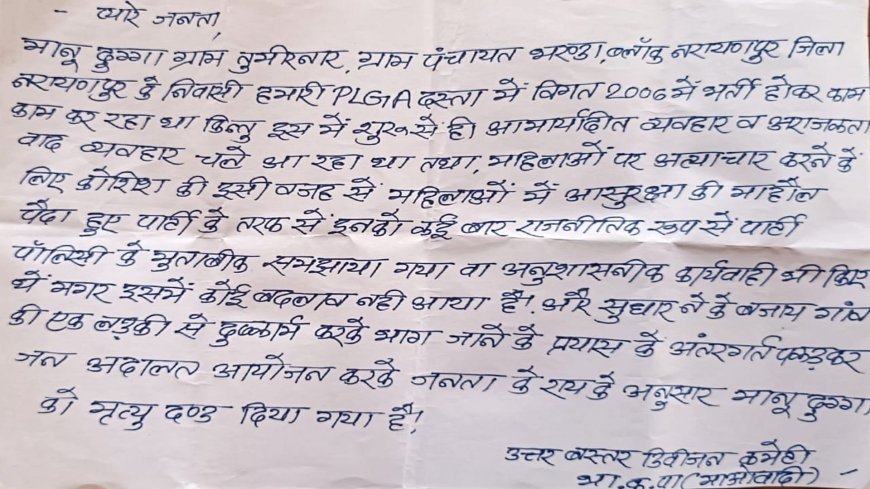 - प्यारे जनता,
भानू दुग्गा ग्राम तुमीरनार, ग्राम पंचायत भरण्डा, ब्लॉक नरायणपुर जिला
नरायणपुर के निवासी हमारी PLGA दस्ता में विगत 2006 में भर्ती होकर काम
काम कर रहा था किन्तु इस में शुरू से ही आमार्यादीत व्यवहार व अराजकता
वाद व्यवहार चले आ रहा था तथा, महिलाओं पर अत्याचार करने के
लिए कोशिश की इसी वजह सें महिलाओं में आसुरक्षा की माहौल
पैदा हुए पार्टी के तरफ सें इनको कई बार राजनीतिक रूप सें पार्टी
पॉलिसी के मुताबीक समझाया गया वा अनुशासनीक कार्यवाही भी किए
थें मगर इसमें कोई बदलाव नही आया हैं! और सुधार ने के बजाय गांव
की एक लड़की से दुष्कार्म करके भाग जाने के प्रयास के अंतरगर्त पकड़कर
जन अदालत आयोजन करके जनता के राय के अनुसार भानू दुग्गा
को मृत्यु दण्ड दिया गया है!
उत्तर बस्तर डिवीजन कमेटी
भा.क.पा (माओवादी) -